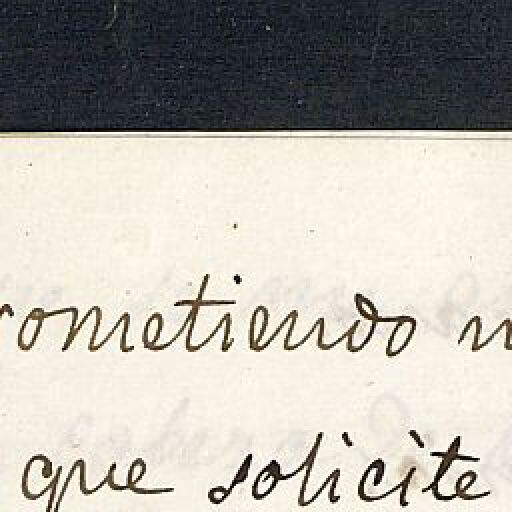 rometiendo
que solicite